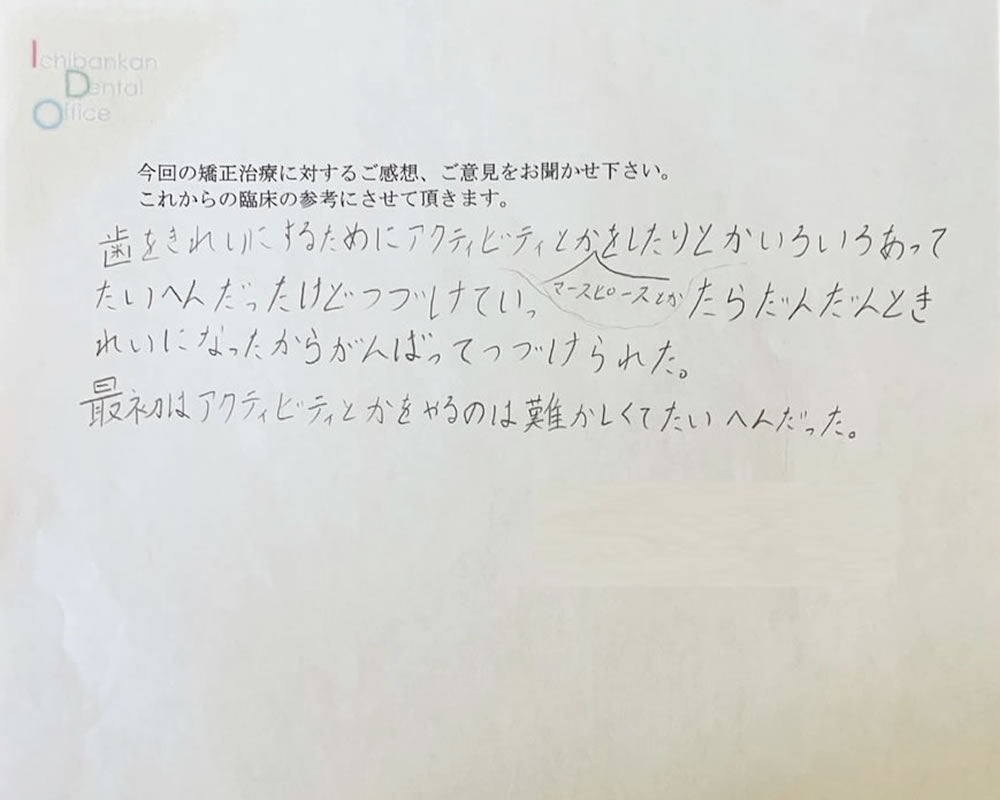 Ichibankan
Dental
Office
今回の矯正治療に対するご感想、ご意見をお聞かせ下さい。
これからの臨床の参考にさせて頂きます。
歯をきれいにするためにアクティビティとかをしたりとかいろいろあって
マースピースとか
たいへんだったけどつづけていったらだんだんとき
れいになったからがんばってつづけられた。
最初はアクティビティとかをやるのは難かしくてたいへんだった。